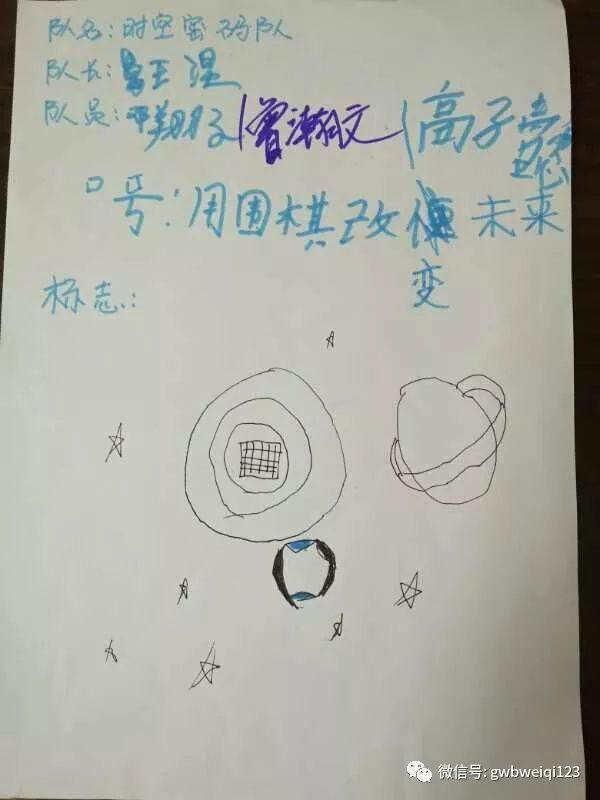 队名:时空密码队
队长:王湦
队员:翔|曾瀚文|高子
口号:用围棋改未来
变
标志:
微信号: gwbweiqi123